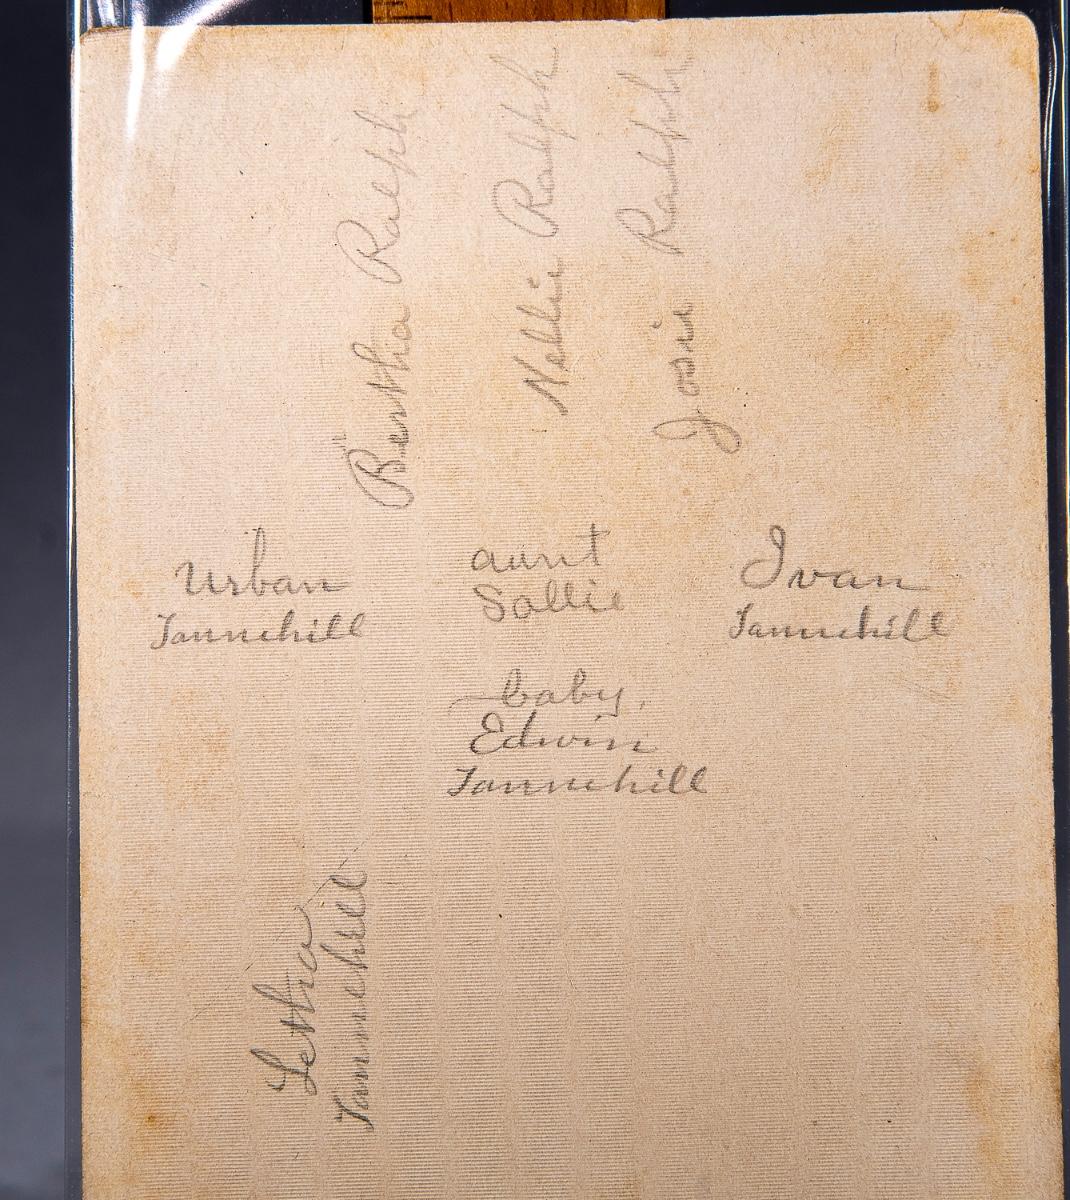 Bertha Ralph
Nellie Ralph
Josie Ralph
Urban
Tannehill
aunt
Sallie
Ivan
Tannehill
baby
Edwin
Tannehill
Letha
Tannehill